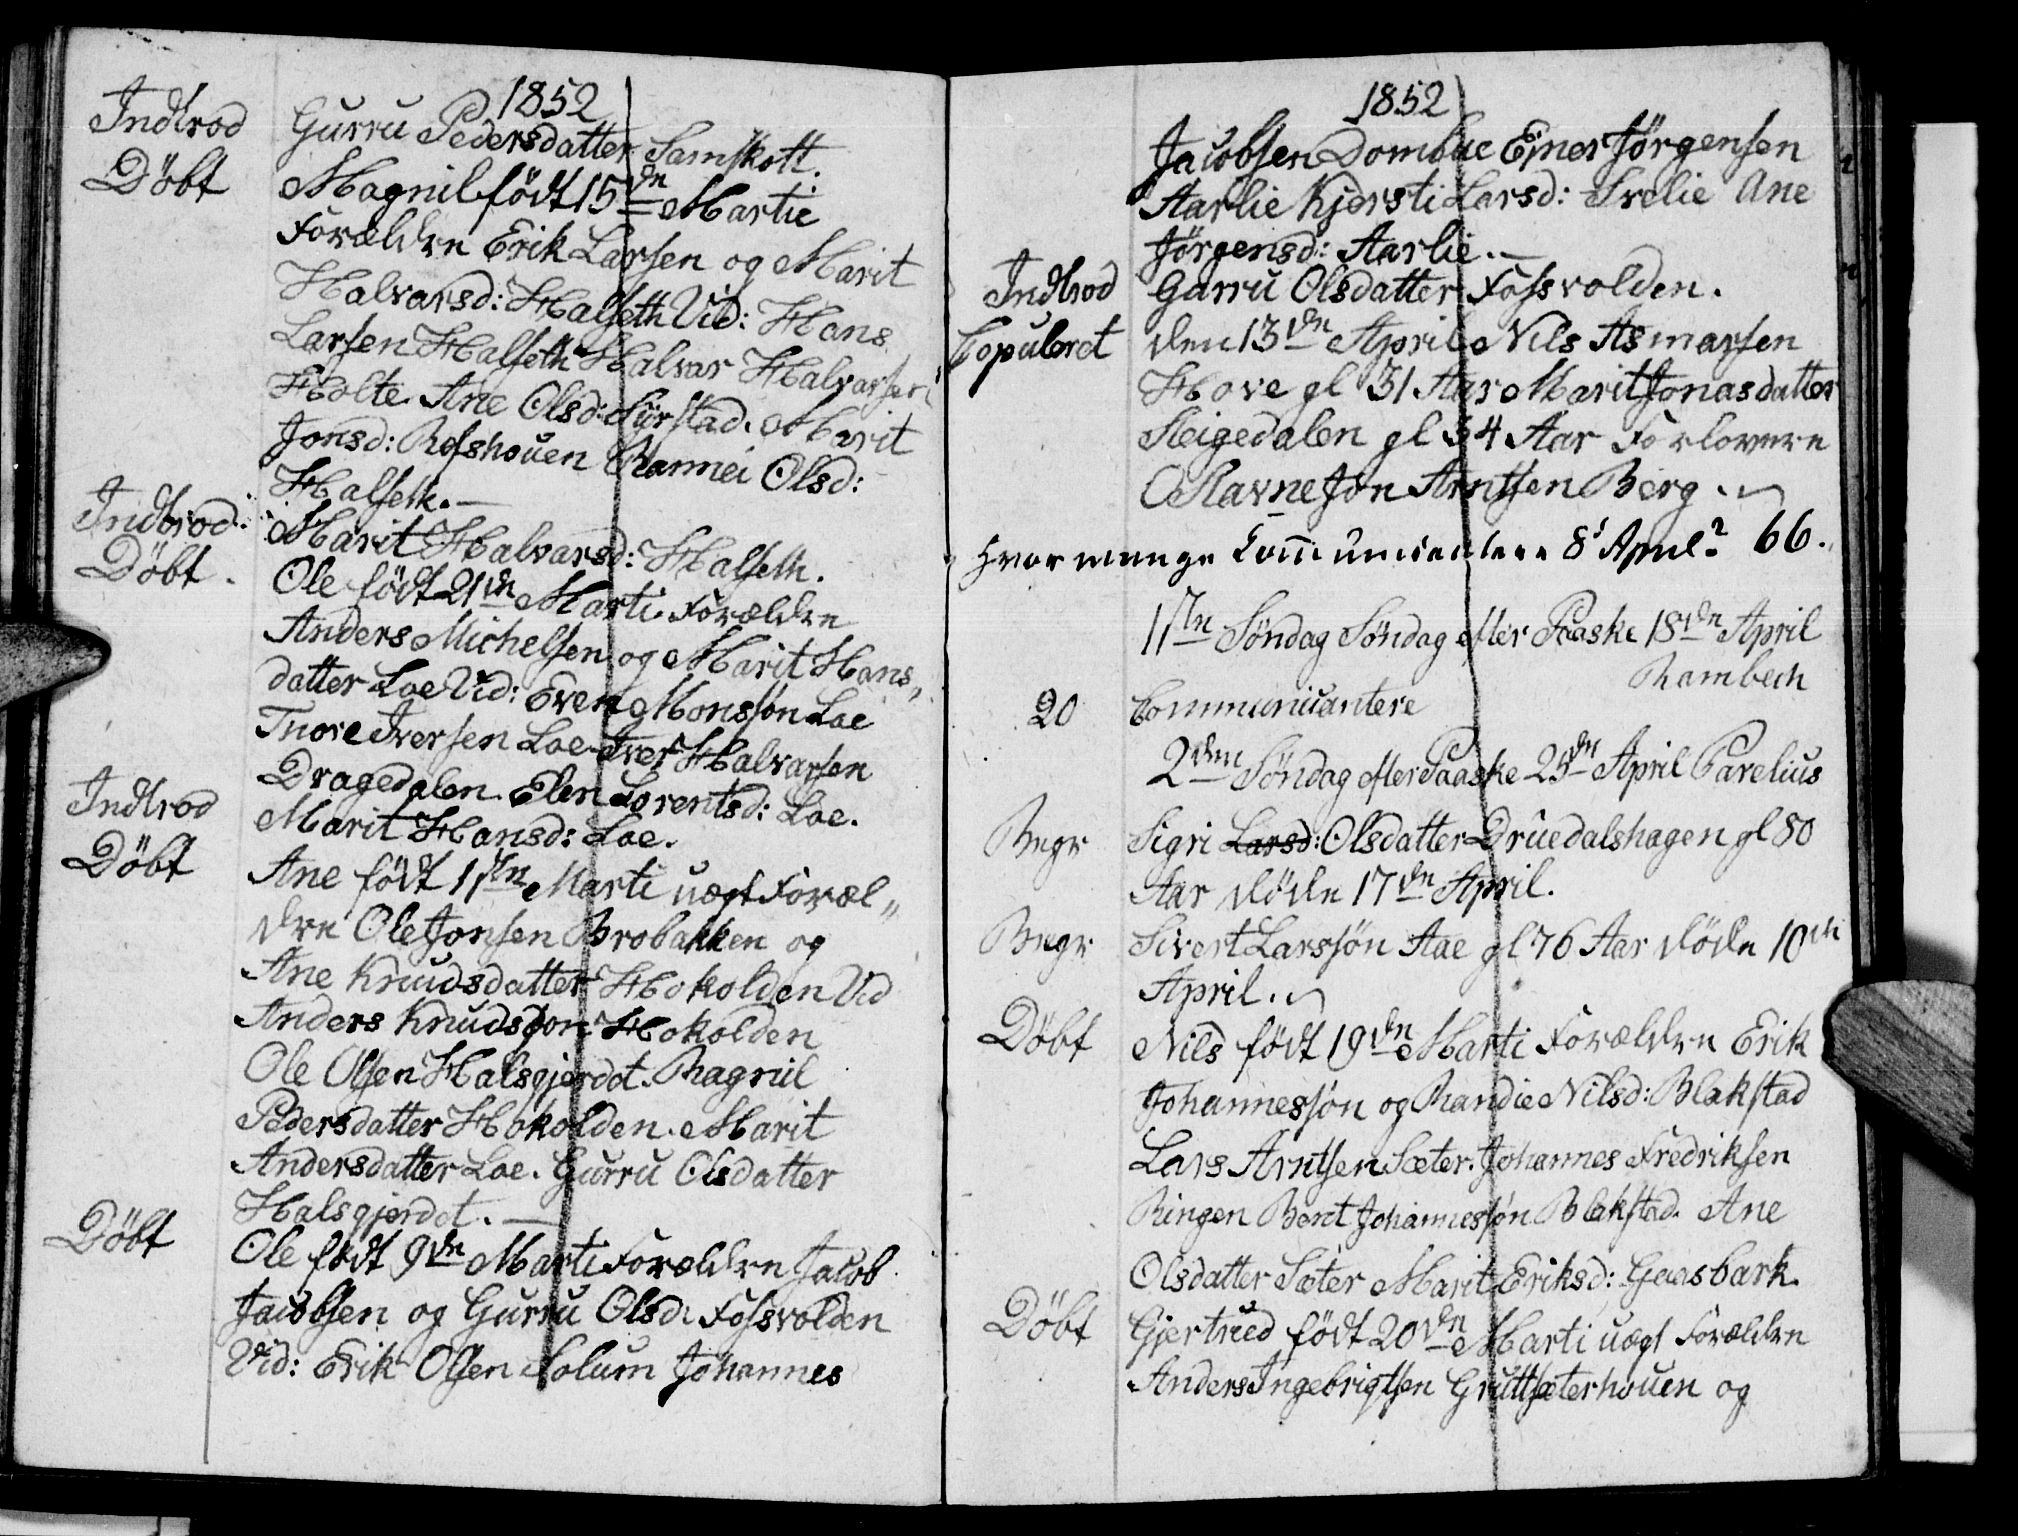 1852
Indtrod Gurru Pedersdatter Samskott.
Döbt Magnil födt 15de Martie
Forældre Erik Larsen og Marit
Halvarsd: Halseth Vid: Hans
Larsen Halseth Halvar Halvarsen
Holte. Ane Olsd: Sürstad. Marit
Jonsd: Refshouen Rannei Olsd:
Halseth.
Indtrod: Marit Halvarsd: Halseth.
Döbt. Ole födt 21de Marti. Forældre
Anders Michelsen og Marit Hans„
datter Loe Vid: Even Monssøn Loe
Tnore Iversen Loe. Iver Halvarsen
Dragedalen. Elen Lorentsd: Loe.
Indtrod Marit Hansd: Loe.
Döbt Ane födt 1ste Marti uægt Foræl„
dre Ole Jonsen Brobakken og
Ane Knudsdatter Hokolden Vid
Anders Knudsson Hokolden
Ole Olsen Halsgjerdet. Ragnil
Pedersdatter Hokolden. Marit
Andersdatter Loe. Gurru Olsdatter
Halsgjerdet.
Döbt Ole födt 9de Marti Forældre Jacob
Jacobsen og Gurru Olsd: Fossvolden
Vid: Erik Olsen Solum Johannes
1852
Jacobsen Dombue Einer Jørgensen
Aarlie Kjersti Larsd: Svelie Ane
Jørgensd: Aarlie.
Indtrod Gurru Olsdatter Fossvolden.
Copuleret den 13de April Nils Asmarsen
Hove gl 31 Aar Marit Jonasdatter
Sleigedalen gl 34 Aar Forlovere
O Ravne Jon Arntsen Berg.
Hvor mange Communicantere 8' April? 66.
1ste Søndag Søndag efter Paaske 18de April
Rambech
20 Communicantere
2den Søndag efter Paaske 25de April Parelius
Begr Sigri Larsd: Olsdatter Druedalshagen gl 80
Aar döde 17de April.
Begr Sivert Larssøn Aae gl 76 Aar döde 10de
April.
Döbt Nils födt 19de Marti Forældre Erik
Johannessøn og Randie Nilsd: Blakstad
Lars Arntsen Sæter. Johannes Fredriksen
Ringen Bent Johannessøn Blakstad. Ane
Olsdatter Sæter Marit Eriksd: Gaasbark.
Döbt Gjertrued födt 20de Marti uægt Forældre
Anders Ingebrigtsen Gruttsæterhouen og